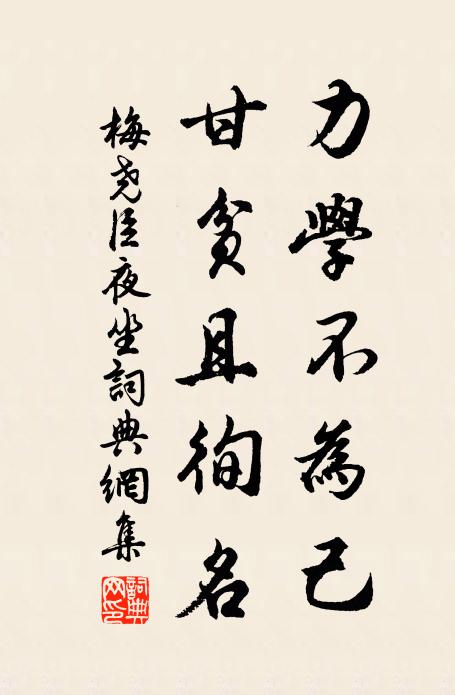 力學不為己
甘貧且徇名
梅堯臣夜坐詞典網集
詞典網印